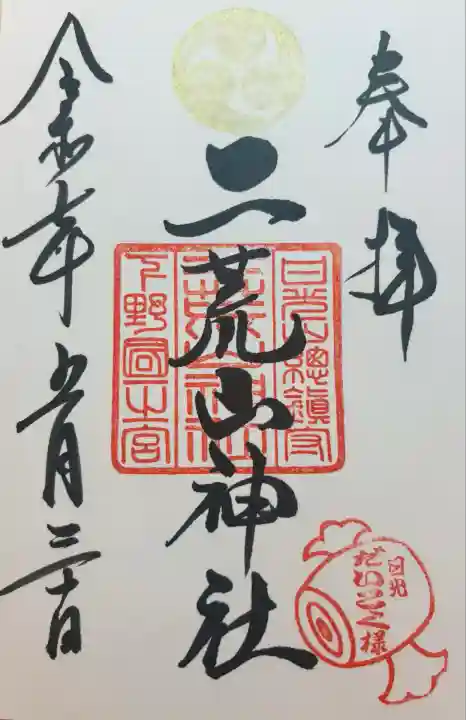 奉拝
日光山總鎮守
二荒山神社
二荒山神社
下野國一之宮
令和元年五月三十日
日光
だいこく様